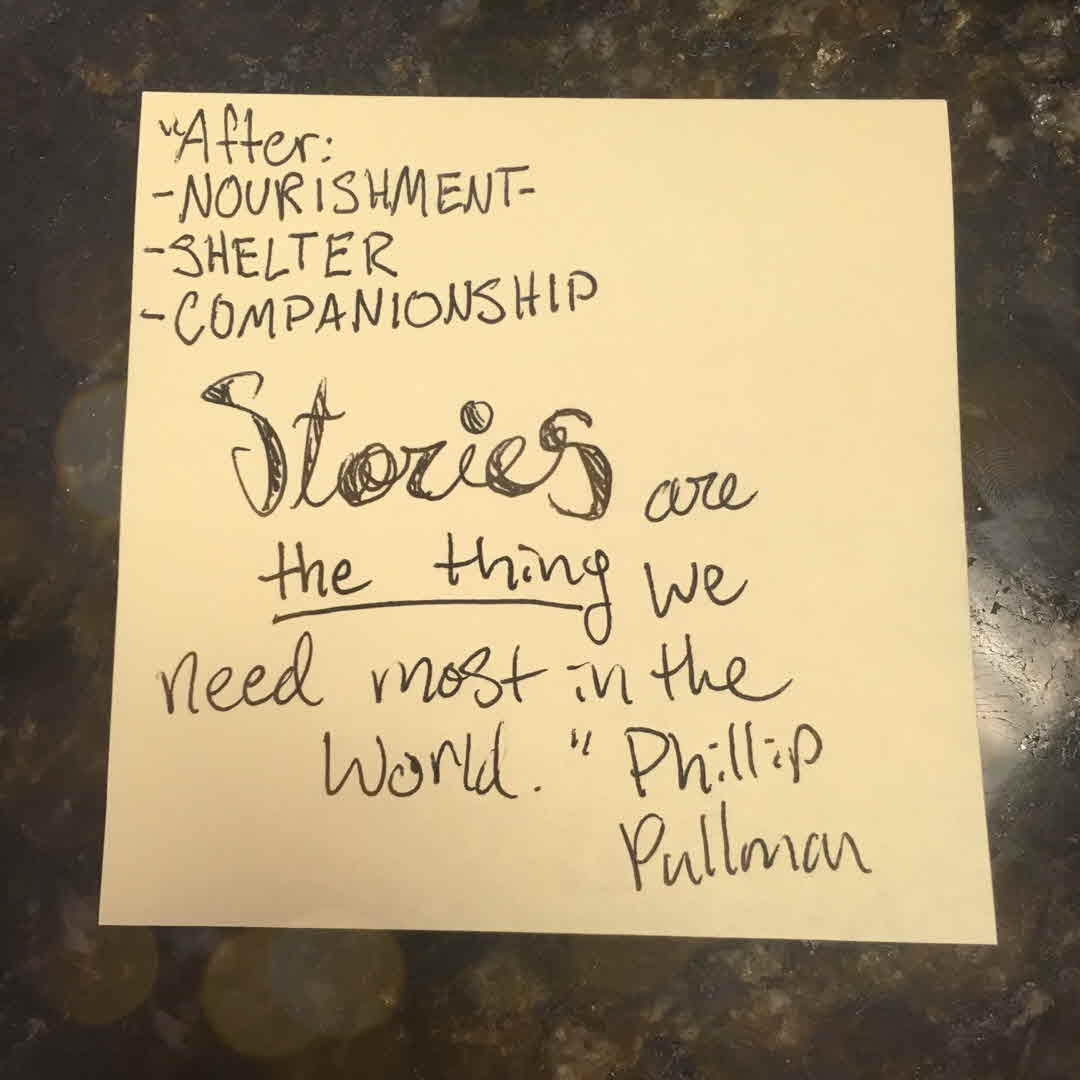 "After:
-NOURISHMENT-
-SHELTER
-COMPANIONSHIP
Stories are
the thing we
need most in the
World." Phillip
Pullman